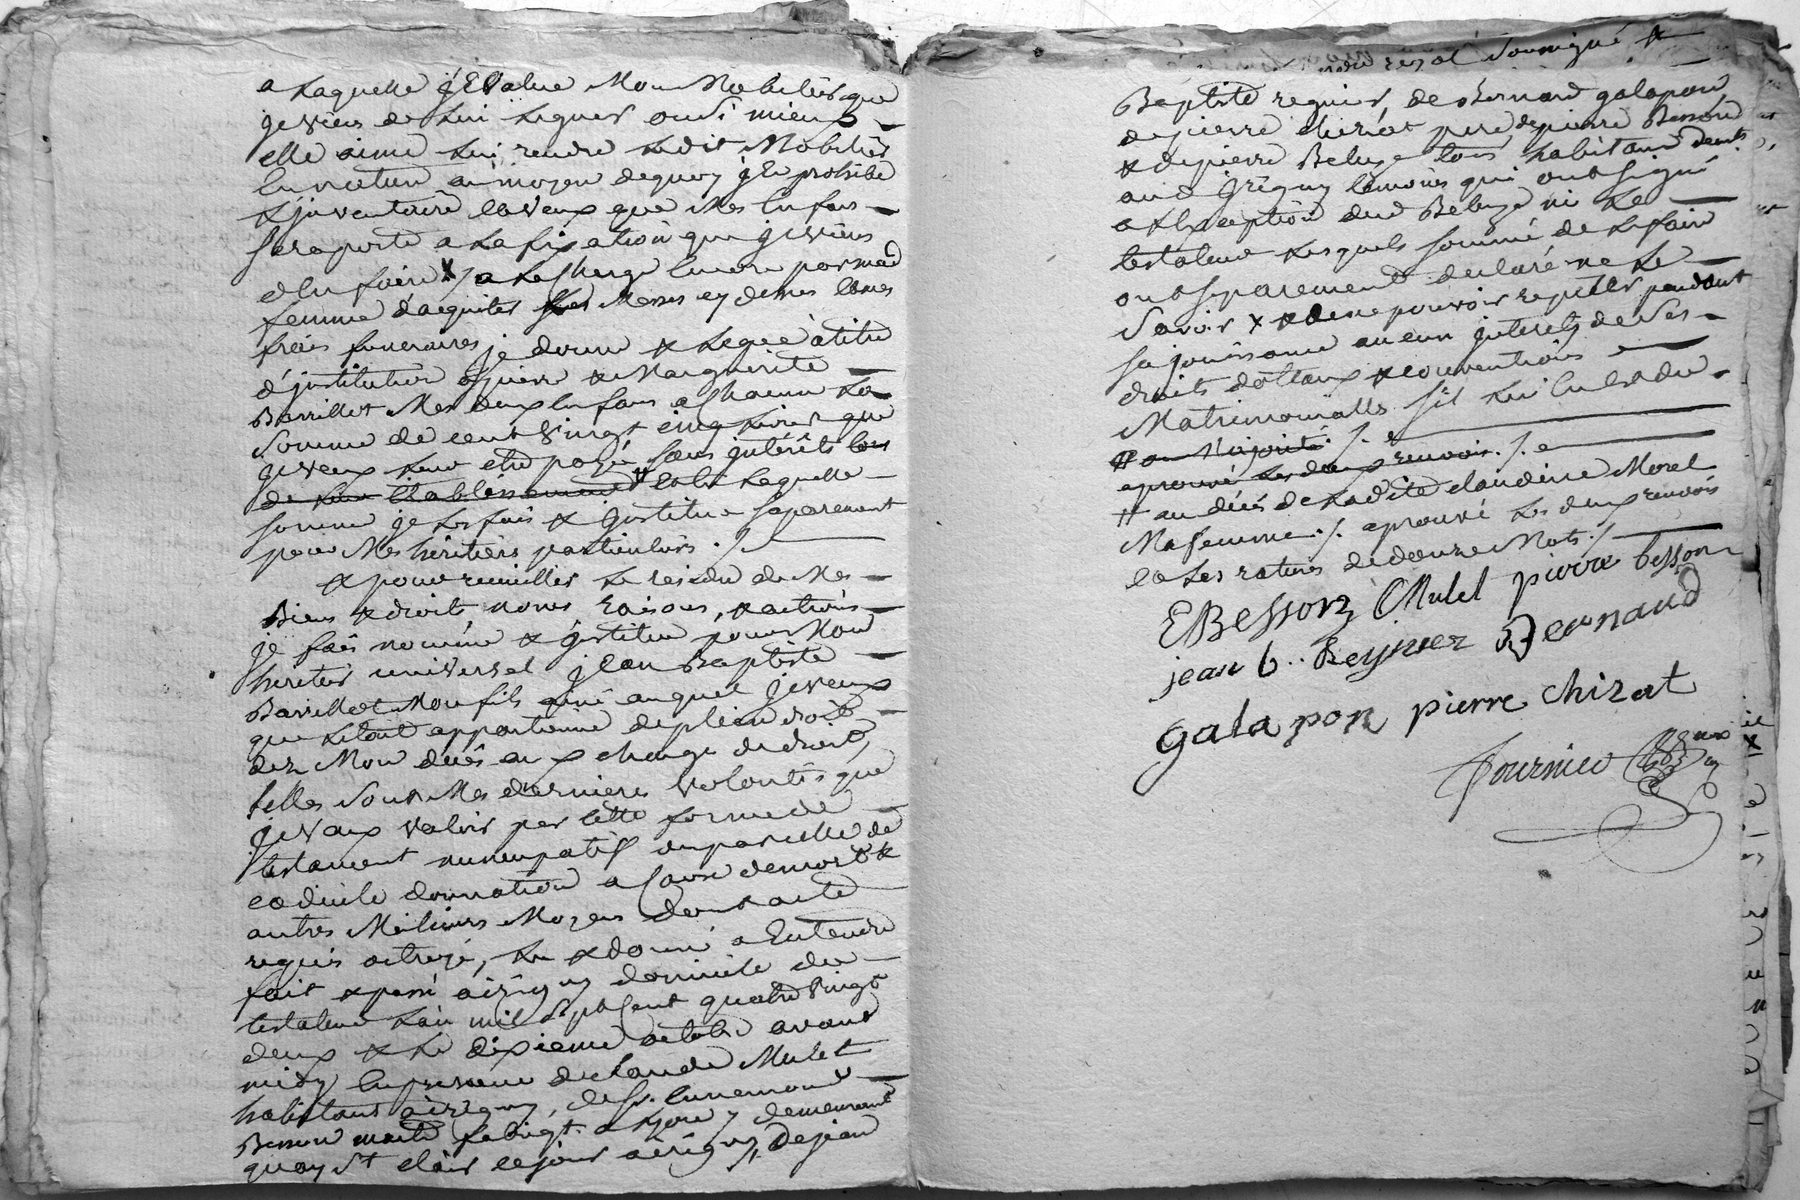 a Laquelle j'Evalue Mon Mobilier que
je viens de Lui Leguer ou si mieux
elle aime Lui rendre Ledit Mobilier
En nature au moyen dequoy j'En prohibe
L'jnventaire & veux que Mes Enfans
a La fixation que je viens
d'En faire X /. a La Charge Encore par mad
femme d'aquiter Les Messes cy dessus & mes
frais funeraires, je donne & Legue a titre
d'jnstitution a pierre & Marguerite
Barrillot Mes deux Enfans a Chacun La
somme de cent vingt cinq Livres que
je veux Leur etre payé sans jntérêts lors
de Leur Etablissement # & En Laquelle
somme je Les fais & jnstitue separement
pour Mes héritiers particuliers ./.
& pour recueillir Le residu de Mes
Biens & droits noms raisons, & actions
je fais nomme & jnstitue pour Mon
heritier universel jean Baptiste
Barrillot Mon fils ainé auquel je veux
que Le tout appartienne de plein droit
dez Mon decès aux charges de droit,
telles sont Mes dernieres volontés que
je veux valoir par cette forme de
testament nuncupatif ou par celle de
codicile donnation a Cause de mort &
autres Meilleurs Moyens dont acte
requis octroyé, Lu & donné a Entendre
fait & passé a jrigny domicile du
testateur L'an mil sept Cent quatre vingt
deux & Le dixieme octobre avant
midy En presence de Claude Mulet
habitant a jrigny, de Sr. Ennemond
Besson marchd fabriqt. a Lyon y demeurant
quay St clair ce jour a jrigny, de jean
soussigné &
Baptiste regnier, de Bernard galapon
de pierre chirat pere, de pierre Besson
& de pierre Beluze tous habitans dud.
aud jrigny témoins qui ont signé
a L'Exception dud Beluze ni Le
testateur Lesquels sommé de Le faire
ont separement declaré ne Le
savoir X & de ne pouvoir repeter pendant
sa jouissance aucun jnterets de ses
droits dottaux & conventions
Matrimonialles s'il Lui En est du
# ou Majorité ./.
aprouvé Les deux renvois ./.
# au décès de Ladite claudine Morel
Ma femme ./. aprouvé Les deux renvois
& Les ratures de douze Mots ./.
EBesson CMulet pierre besson
jean b.. Reynier Bernard
galapon pierre chirat
fournier